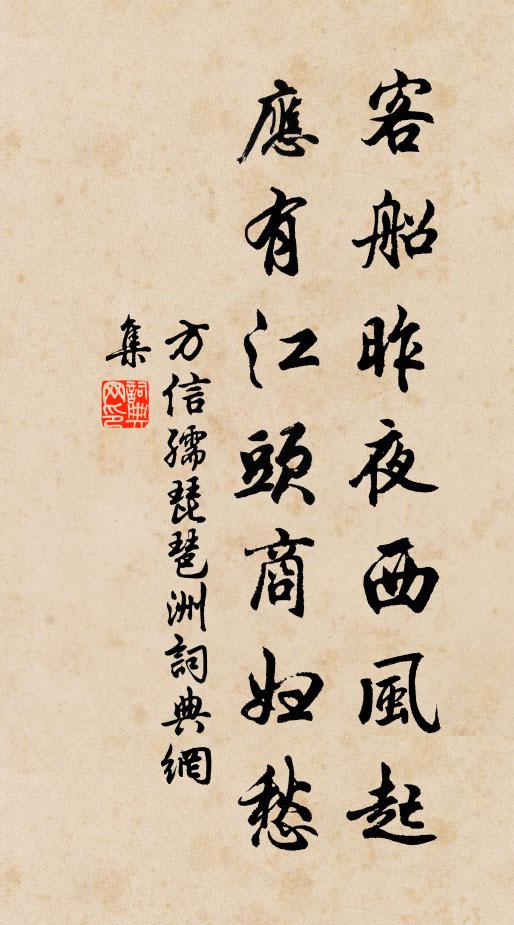 客船昨夜西風起
應有江頭商婦愁
方信孺琵琶洲詞典網
集
詞典
网印